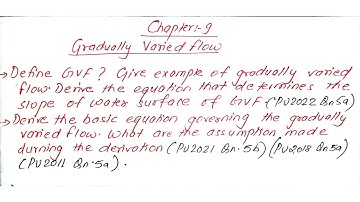 Chapter:-9
Gradually Varied flow
→ Define GVF? Give example of gradually varied
flow. Derive the equation that determines the
slope of water surface of GVF. (PU2022 Qn5a)
→ Derive the basic equation governing the gradually
varied flow. what are the assumption made
durning the derivation (PU2021 Qn.5b) (PU2018 Qn5a)
(PU2011 Qn.5a).